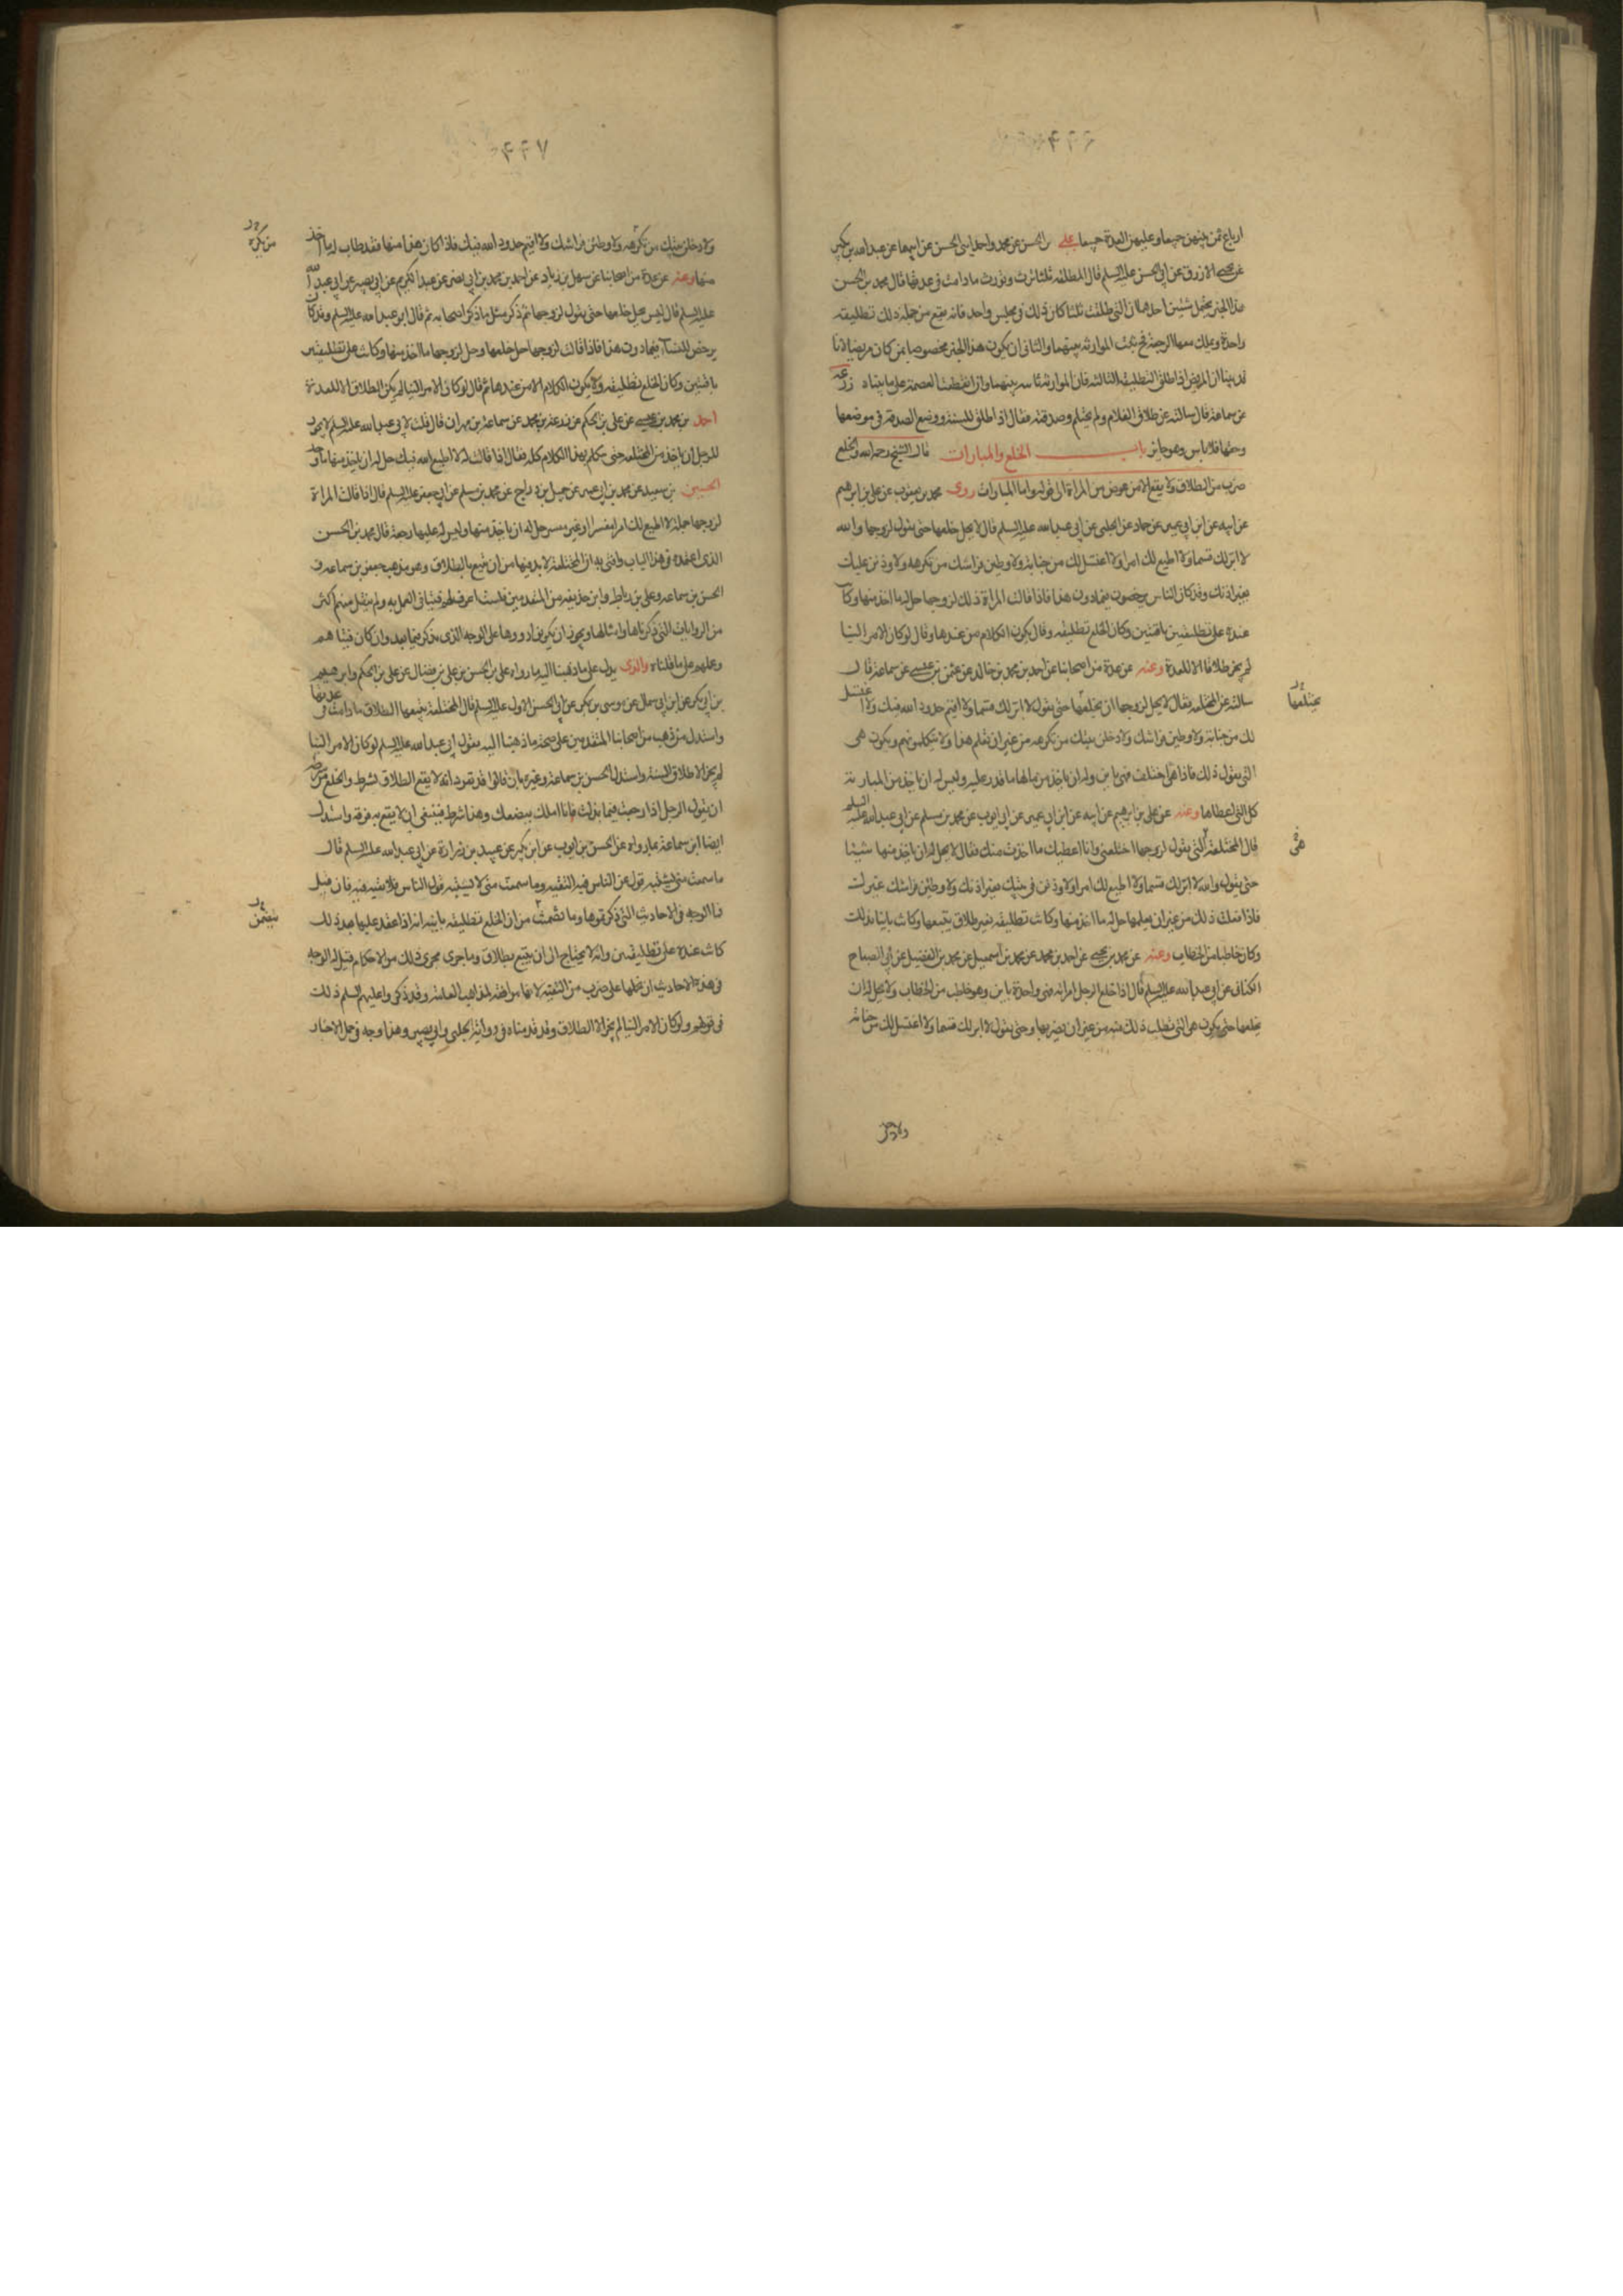 ۴۴۶
ارباع ثمن بينهن جميعا وعليهن العدة جميعا علي بن الحسن عن محمد واحمد ابني الحسن عن ابيهما عن عبدالله بن بكير
عن يحيى الازرق عن ابي الحسن عليه السلم قال المطلقة ثلثا ترث وتورث ما دامت في عدتها قال محمد بن الحسن
هذا الخبر يحتمل شيئين احدهما ان التي طلقت ثلثا كان ذلك في مجلس واحد فانه يقع من جملة ذلك تطليقة
واحدة ويملك معها الرجعة ثم تثبت الموارثة بينهما والثاني ان يكون هذا الخبر مخصوصا بمن كان مريضا لانا
قد بينا ان المريض اذا طلق التطليقة الثالثة فان الموارثة ثابتة بينهما وان انقطعت العصمة على ما بيناه زرعة
عن سماعة قال سالته عن طلاق الغلام ولم يحتلم وصدقته فقال اذا طلق للسنة ووضع الصدقة في موضعها
وحقها فلا باس وهو جائز باب الخلع والمبارات قال الشيخ رحمه الله والخلع
ضرب من الطلاق ولا يقع الا من عوض من المراة الى قوله واما المبارات روى محمد بن يعقوب عن علي بن ابراهيم
عن ابيه عن ابن ابي عمير عن حماد عن الحلبي عن ابي عبد الله عليه السلم قال لا يحل خلعها حتى يقول لزوجها والله
لا ابر لك قسما ولا اطيع لك امرا ولا اغتسل لك من جنابة ولاوطين فراشك من تكرهه ولاوذنن عليك
بغير اذنك وقد كان الناس يرخصون فيما دون هذا فاذا قالت المراة ذلك لزوجها حل له ما اخذ منها وكانت
عنده على تطليقتين باقيتين وكان الخلع تطليقة وقال يكون الكلام من عندها وقال لو كان الامر الينا
لم يجز طلاقا الا للعدة وعنه عن عدة من اصحابنا عن احمد بن محمد بن خالد عن عثمن بن عيسى عن سماعة قال
سالته عن المختلعة فقال لا يحل لزوجها ان يخلعها حتى يقول لا ابر لك قسما ولا اقيم حدود الله فيك ولا اغتسل
لك من جنابة ولاوطين فراشك ولادخلن بيتك من تكرهه من غير ان تعلم هذا ولا يتكلمونهم ويكون هي
التي يقول ذلك فاذا هي اختلعت فهي باين وله ان ياخذ من مالها ما قدر عليه وليس له ان ياخذ من المبارئة
كل الذي اعطاها وعنه عن علي بن ابراهيم عن ابيه عن ابن ابي عمير عن ابي ايوب عن محمد بن مسلم عن ابي عبد الله عليه السلم
قال المختلعة التي يقول لزوجها اختلعني وانا اعطيك ما اخذت منك فقال لا يحل له ان ياخذ منها شيئا
حتى يقول والله لا ابر لك قسما ولا اطيع لك امرا ولاوذنن في بيتك بغير اذنك ولاوطين فراشك غيرك
فاذا فعلت ذلك من غير ان يعلمها حل له ما اخذ منها وكانت تطليقة بغير طلاق يتبعها وكانت باينا بذلك
وكان خاطبا من الخطاب وعنه عن محمد بن يحيى عن احمد بن محمد عن محمد بن اسمعيل عن محمد بن الفضيل عن ابي الصباح
الكناني عن ابي عبد الله عليه السلم قال اذا خلع الرجل امراته فهي واحدة باين وهو خاطب من الخطاب ولا يحل له ان
يخلعها حتى يكون هي التي تطلب ذلك منه من غير ان يضر بها وحتى يقول لا ابر لك قسما ولا اغتسل لك من جنابة
يختلعها
هي
ولادخلن
۴۴۷
ولادخلن بيتك من تكرهه ولاوطين فراشك ولا اقيم حدود الله فيك فاذا كان هذا منها فقد طاب له ما اخذ
منها وعنه عن عدة من اصحابنا عن سهل بن زياد عن احمد بن محمد بن ابي نصر عن عبد الكريم عن ابي بصير عن ابي عبد الله
عليه السلم قال ليس يحل خلعها حتى يقول لزوجها ثم ذكر مثل ما ذكر اصحابه ثم قال ابو عبد الله عليه السلم وقد كان
يرخص للنساء فيما دون هذا فاذا قالت لزوجها حل خلعها وحل لزوجها ما اخذ منها وكانت على تطليقتين
باقيتين وكان الخلع تطليقة ولا يكون الكلام الا من عندها ثم قال لو كان الامر الينا لم يكن الطلاق الا للعدة
احمد بن محمد بن عيسى عن علي بن الحكم عن زرعة بن محمد عن سماعة بن مهران قال قلت لابي عبد الله عليه السلم لا يجوز
للرجل ان ياخذ من المختلعة حتى تتكلم بهذا الكلام كله فقال اذا قالت له لا اطيع الله فيك حل له ان ياخذ منها ما وجد
الحسين بن سعيد عن محمد بن ابي عمير عن جميل بن دراج عن محمد بن مسلم عن ابي جعفر عليه السلم قال اذا قالت المراة
لزوجها جملة لا اطيع لك امرا مفسرا او غير مفسر حل له ان ياخذ منها وليس له عليها رجعة قال محمد بن الحسن
الذي اعتمده في هذا الباب وافتي به ان المختلعة لا بد فيها من ان يتبع بالطلاق وهو مذهب جعفر بن سماعة و
الحسن بن سماعة وعلي بن رباط وابن حذيفة من المتقدمين فلست اعرف لهم فتيا في العمل به ولم ينقل منهم اكثر
من الروايات التي ذكرناها وامثالها ويجوز ان يكونوا رووها على الوجه الذي نذكر فيما بعد وان كان فتياهم
وعملهم على ما قلناه والذي يدل على ما ذهبنا اليه ما رواه علي بن الحسن بن علي بن فضال عن علي بن الحكم وابراهيم
بن ابي بكر عن ابن ابي سمال عن موسى بن بكر عن ابي الحسن الاول عليه السلم قال المختلعة يتبعها الطلاق ما دامت في عدتها
واستدل من ذهب من اصحابنا المتقدمين على صحة ما ذهبنا اليه بقول ابي عبد الله عليه السلم لو كان الامر الينا
لم يجز الا طلاق السنة واستدل الحسن بن سماعة وغيره بان قالوا قد تقرر انه لا يقع الطلاق بشرط والخلع من شرطه
ان يقول الرجل اذا رجعت فيما بذلت فانا املك ببضعك وهذا شرط فينبغي ان لا يقع به فرقة واستدل
ايضا ابن سماعة بما رواه عن الحسن بن ايوب عن ابن بكير عن عبيد بن زرارة عن ابي عبد الله عليه السلم قال
ما سمعت مني يشبه قول الناس فيه التقية وما سمعت مني لا يشبه قول الناس فلا تقية فيه فان قيل
فما الوجه في الاحاديث التي ذكرتموها وما تضمنت من ان الخلع تطليقة باينة انه اذا عقد عليها بعد ذلك
كانت عنده على تطليقتين وانه لا يحتاج الى ان يتبع بطلاق وما جرى مجرى ذلك من الاحكام قيل له الوجه
في هذه الاحاديث ان نحملها على ضرب من التقية لانها موافقة لمذاهب العامة وقد ذكروا عليهم السلم ذلك
في قولهم ولو كان الامر الينا لم يجز الا الطلاق وقد قدمناه في رواية الحلبي وابي بصير وهذا وجه في حمل الاخبار
من تكره